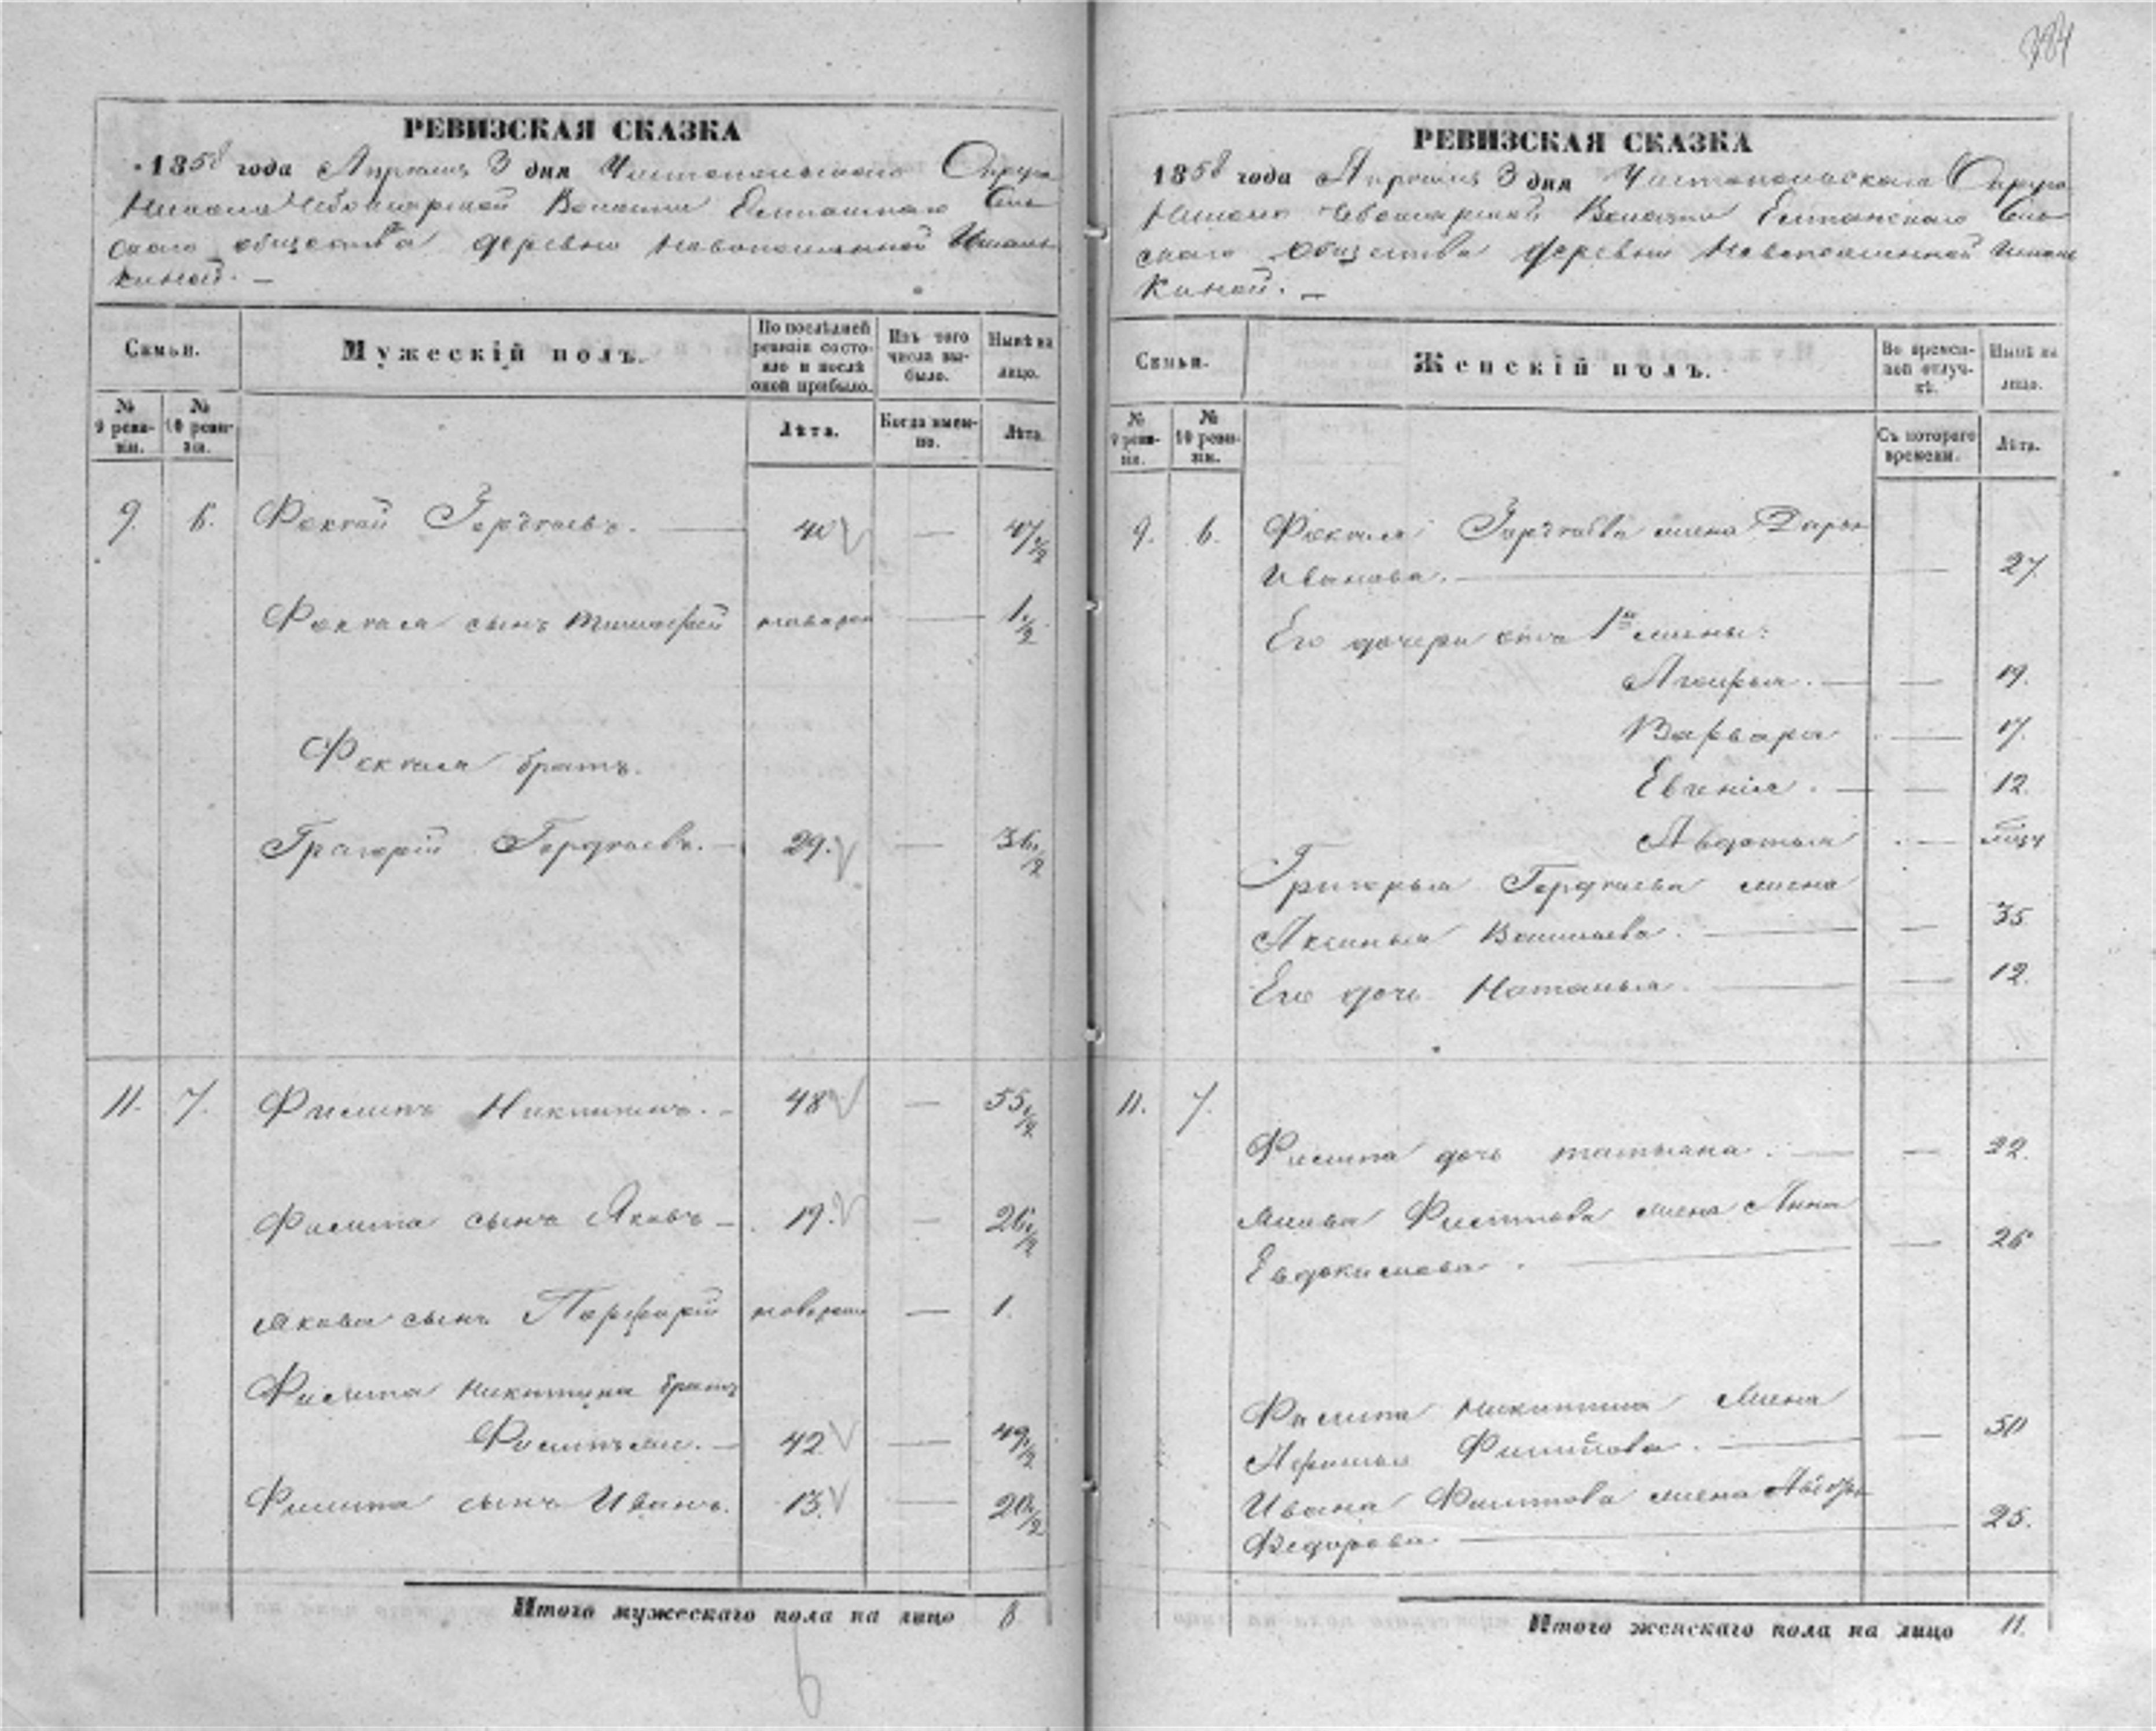 184
РЕВИЗСКАЯ СКАЗКА
1858 года Апреля 3 дня Чистопольскаго Округа
Волости
скаго общества деревни Новопоселенной Ишаль
киной. —
Семьи.
Мужескій полъ.
По послѣдней ревизіи состояло и послѣ оной прибыло.
Изъ того числа выбыло.
Нынѣ на лицо.
№ 9 ревизіи.
№ 10 ревизіи.
Лѣта.
Когда именно.
Лѣта.
9. 6. Фектай Гордѣевъ. — 40 — 47 1/2
Фектая сынъ Тимофей — 1 1/2
Фектая братъ.
Григорій Гордѣевъ. — 29. — 36 1/2
11. 7. Филипъ Никитинъ. — 48 — 55 1/2
Филипа сынъ Яковъ — 19. — 26 1/2
Якова сынъ Порфирій — 1.
Филипа Никитина братъ
Филипъ же. — 42 — 49 1/2
Филипа сынъ Иванъ. 13. — 20 1/2
Итого мужескаго пола на лицо 8
6
РЕВИЗСКАЯ СКАЗКА
1858 года Апреля 3 дня Чистопольскаго Округа
Волости
скаго общества деревни Новопоселенной Ишаль
киной. —
Семьи.
Женскій полъ.
Во временной отлучкѣ.
Нынѣ на лицо.
№ 9 ревизіи.
№ 10 ревизіи.
Съ котораго времени.
Лѣта.
9. 6. Фектая Гордѣева жена Дарья
Иванова. — — 27.
Его дочери отъ 1й жены:
— — 19.
Варвара — 17.
Евгенія. — — 12.
Авдотья —
Григорья Гордѣева жена
Аксинья Васильева. — — 35
Его дочь Наталья. — — 12.
11. 7.
Филипа дочь Татьяна. — — 22.
Якова Филипова жена Анна
Евдокимова. — — 26
Филипа Никитина жена
Филипова. — — 50
Ивана Филипова жена
Федорова — 25.
Итого женскаго пола на лицо 11.